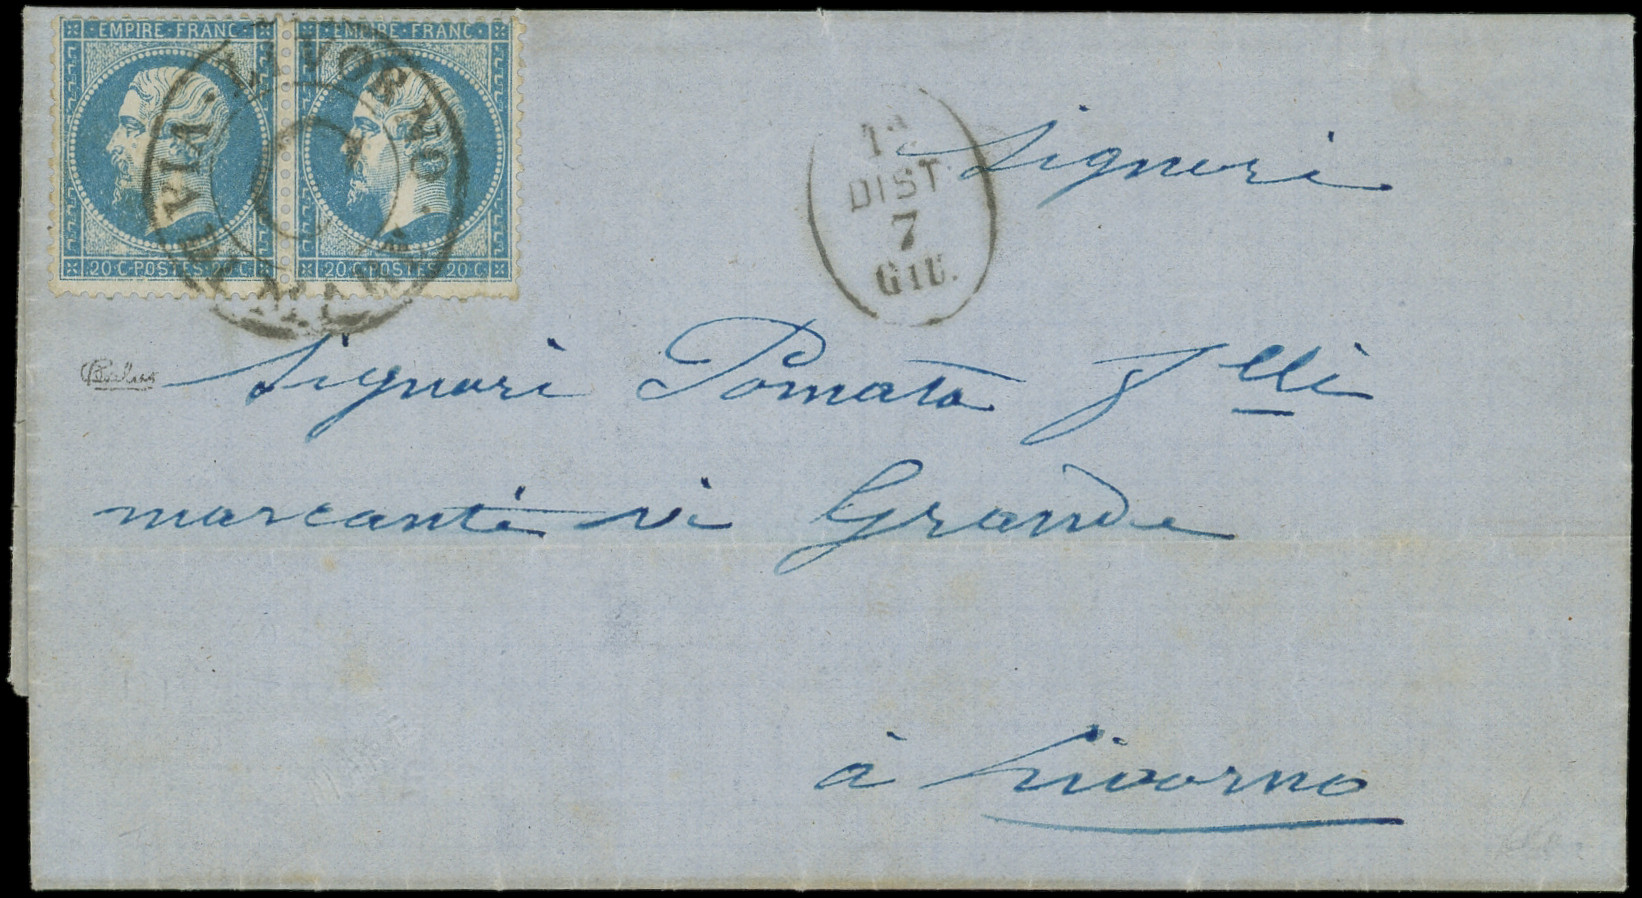 EMPIRE · FRANC · EMPIRE · FRANC ·
20 C · POSTES · 20 C · 20 C · POSTES · 20 C ·
LIVORNO · VIA DI MARE ·
1ª
DIST
7
GIU.
Signori
Signori Pomata Flli
mercanti vi Grande
à Livorno